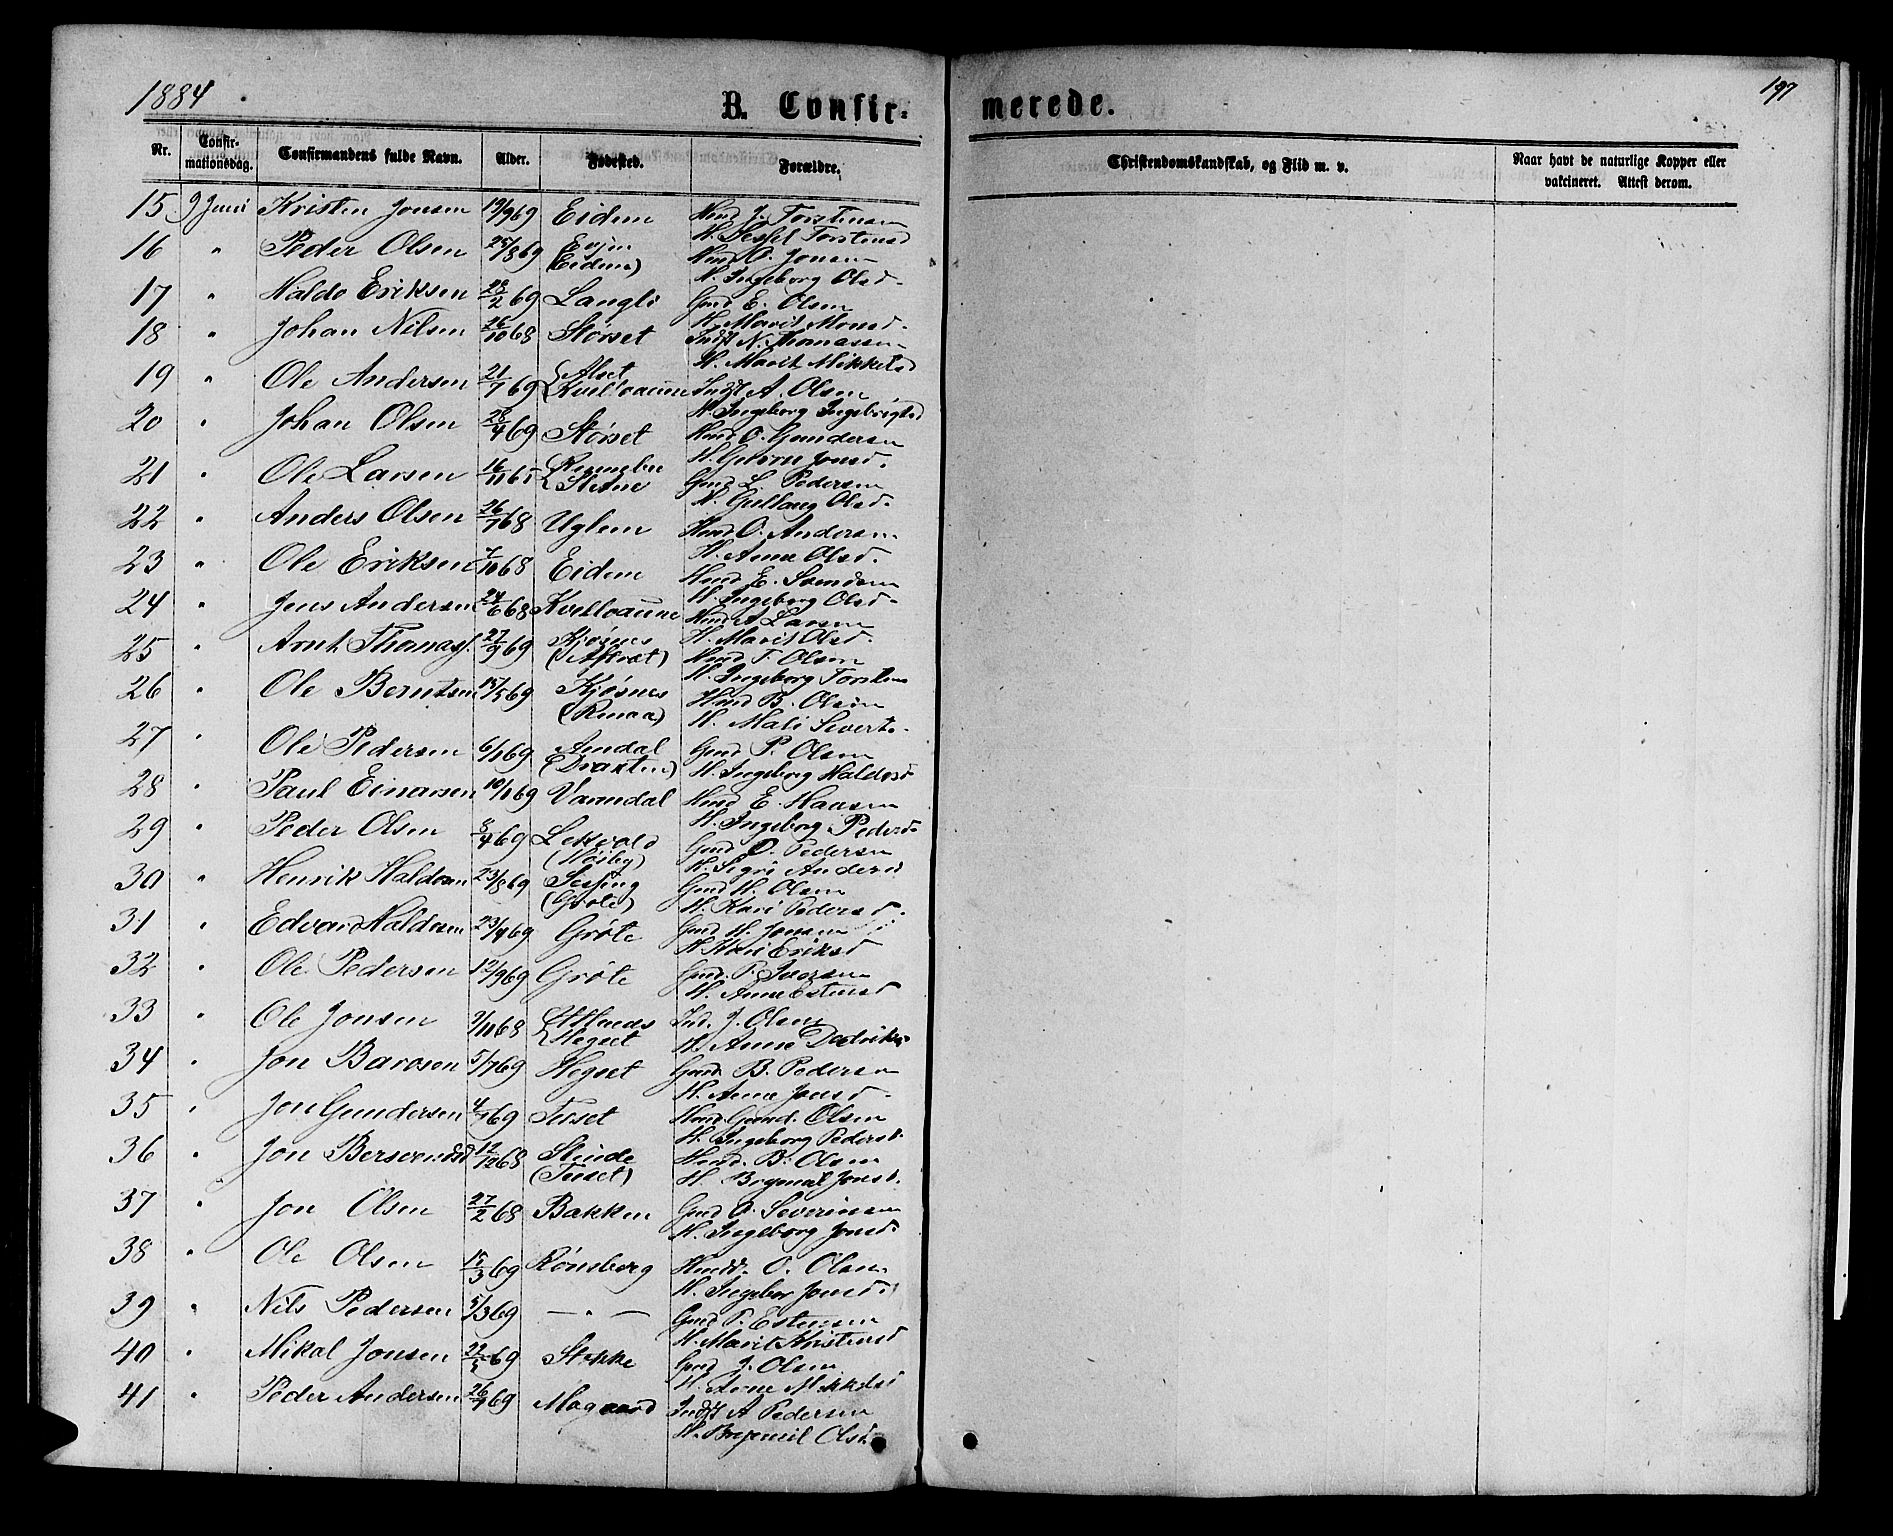 1884
197
B. Confir-
merede.
Nr.
Confir-
mationsdag.
Confirmandens fulde Navn.
Alder.
Fødested.
Forældre.
Christendomskundskab, og Flid m. v.
Naar havt de naturlige Kopper eller
vakcineret. Attest derom.
15 9 Juni Kristen Jonsen 19/9 69 Eidem Hmd J. Torstensen
H. Torstensd
16 " Peder Olsen 25/8 69 Evjen (Eidem) Hmd O. Jonsen
H. Ingeborg Olsd.
17 " Haldo Eriksen 28/2 69 Langli Gmd E. Olsen
H. Marit Monsd.
18 " Johan Nilsen 26/10 68 Størset Indst N. Thomassen
H. Marit Mikkelsd
19 " Ole Andersen 21/7 69 Alset Kvelloaune Indst A. Olsen
H. Ingeborg Ingebrigtsd
20 " Johan Olsen 28/4 69 Størset Hmd O. Gundersen
H. Jonsd.
21 " Ole Larsen 16/11 65 Rennebu Gmd L. Pedersen
H. Gullaug Olsd.
22 " Anders Olsen 26/7 68 Uglem Hmd O. Andersen
H. Anne Olsd.
23 " Ole Eriksen 7/10 68 Eidem Hmd E. Svendsen
H. Ingeborg Olsd.
24 " Jens Andersen 24/6 68 Kvelloaune Hmd A Larsen
H. Marit Olsd.
25 " Arnt Thomass. 27/9 69 Kjøsnes Hmd T. Olsen
H. Ingeborg
26 " Ole Berntsen 15/5 69 Kjøsnes Hmd B. Olsen
H. Mali Siverts.
27 " Ole Pedersen 6/1 69 Amdal (Draxten) Gmd P. Olsen
H. Ingeborg Haldosd
28 " Paul Einarsen 10/1 69 Varmdal Hmd E. Hansen
H. Ingeborg Pedersd.
29 " Peder Olsen 8/4 69 Lekvold Gmd O. Pedersen
H. Sigri Andersd
30 " Henrik Haldosen 23/8 69 Sessing (Grøte) Gmd H. Olsen
H. Kari Pedersd.
31 " Edvard Haldosen 23/4 69 Grøte Gmd H. Jonsen
H. Kari Eriksd
32 " Ole Pedersen 12/9 69 Grøte Gmd. P. Iversen
H. Anne Estensd
33 " Ole Jonsen 9/11 68 Hegset Ind. J. Olsen
H. Anne
34 " Jon Barosen 5/7 69 Hegset Gmd. B. Pedersen
H. Anne Jonsd.
35 " Jon Gundersen 69 Tuset Hmd Gund. Olsen
H. Ingeborg Pedersd.
36 " Jon 12/12 68 Slinde (Tuset) Hmd. B. Olsen
H. Jonsd.
37 " Jon Olsen 27/2 68 Bakken Gmd O. Severinsen
H. Ingeborg Jonsd.
38 " Ole Olsen 15/3 69 Rønsberg O. Olsen
H. Ingebor Jonsd.
39 " Nils Pedersen 5/3 69 — " — Gmd P. Estensen
H. Marit Kristensd
40 " Mikal Jonsen 69 Stokke Gmd J. Olsen
H. Anne Mikkelsd
41 " Peder Andersen 26/9 69 Mogaard Indst A Pedersen
H. Olsd.